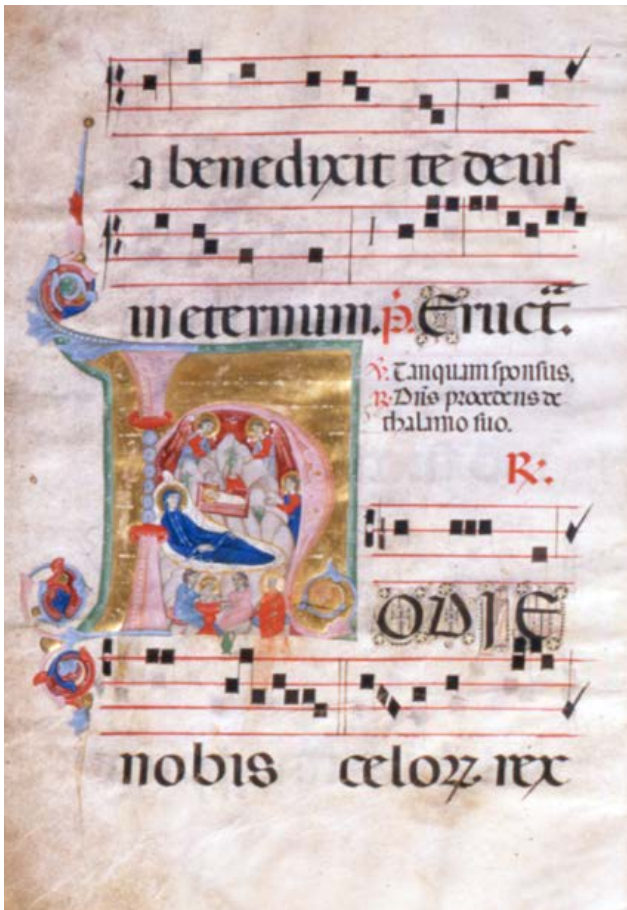 a benedixit te deus
in eternum. p̄. Eruct̄.
℣. Tanquam sponsus.
R. Dn̄s procedens de
thalamo suo.
R:
HODIE
nobis celoꝝ rex